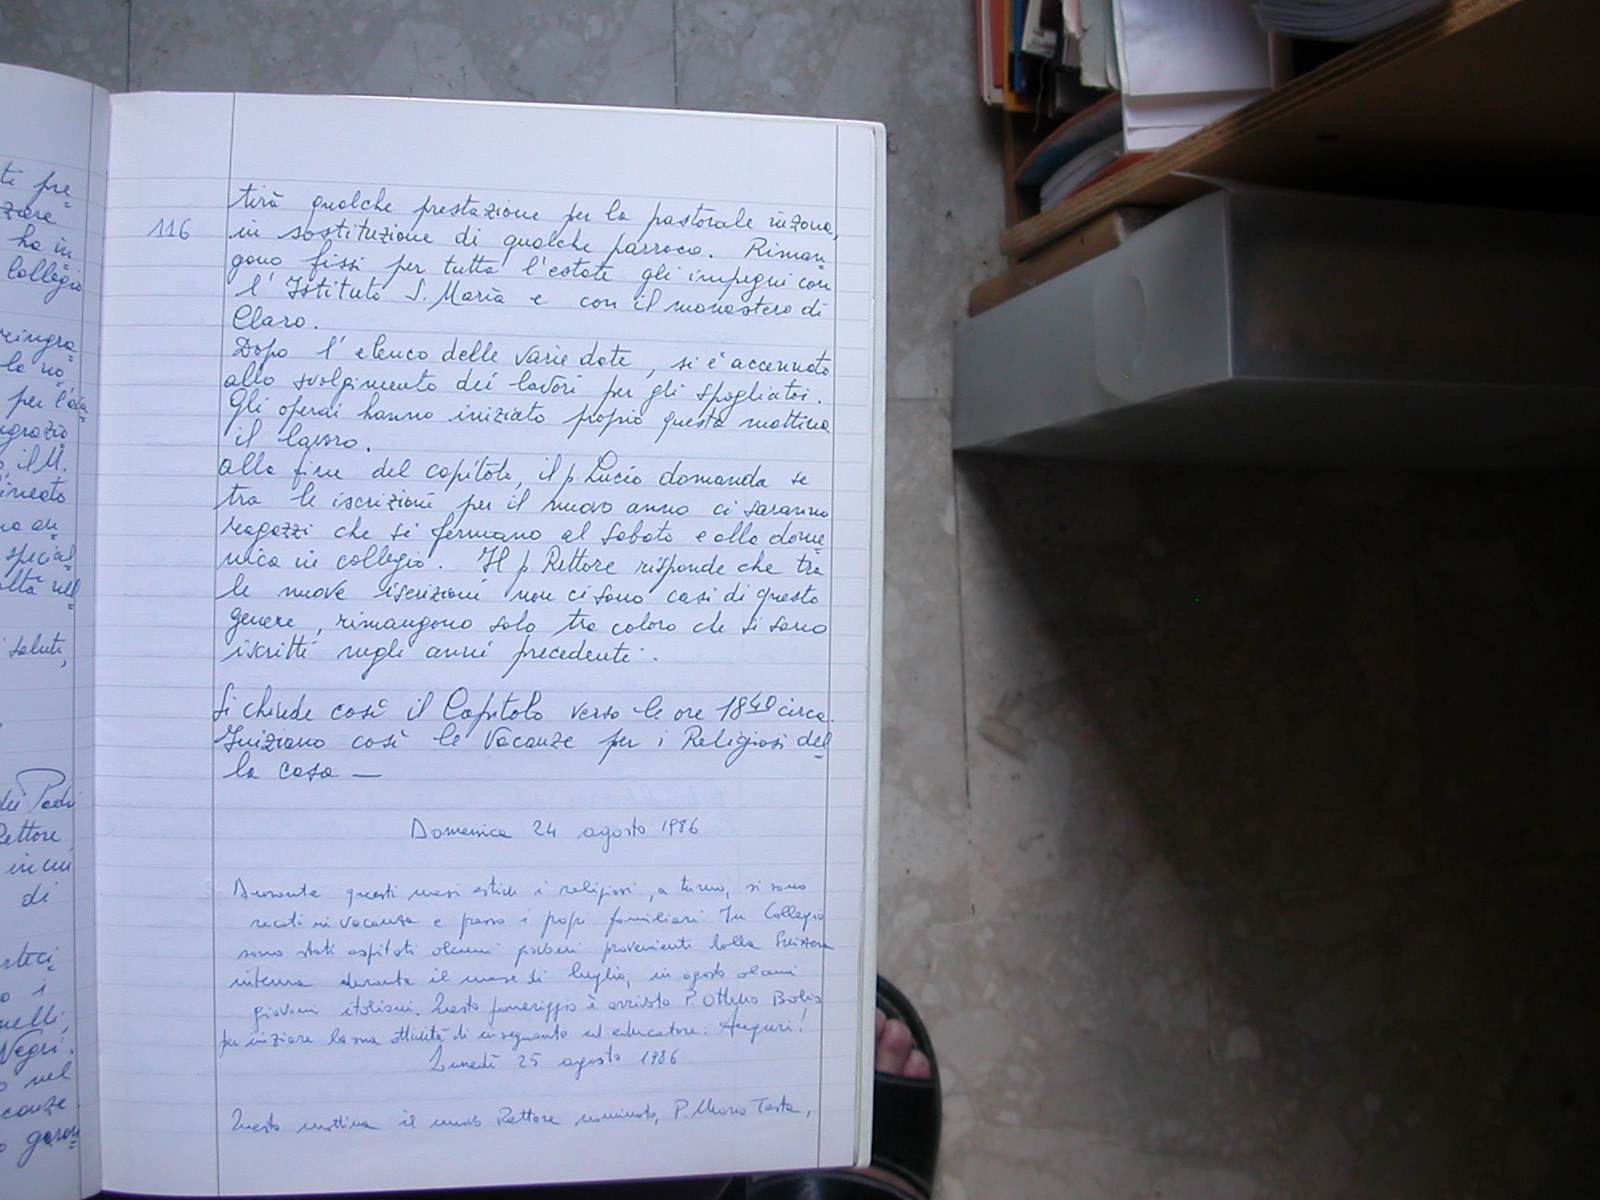 ti pre=
ziare
ha in
Collegio
reingra=
la no=
per l'
ngrazio
il M.
ineato
special
altà nel=
saluti,
dei Padri
Rettore,
in cui
di
arteci=
o i
nelli,
Negri.
o nel
canze.
116
tirà qualche prestazione per la pastorale in zona,
in sostituzione di qualche parroco. Riman=
gono fissi per tutta l'estate gli impegni con
l'Istituto S. Maria e con il monastero di
Claro.
Dopo l'elenco delle varie date, si è accennato
allo svolgimento dei lavori per gli spogliatoi.
Gli operai hanno iniziato proprio questa mattina
il lavoro.
Alla fine del capitolo, il p. Lucio domanda se
tra le iscrizioni per il nuovo anno ci saranno
ragazzi che si fermano al sabato e alla dome=
nica in collegio. Il p. Rettore risponde che tra
le nuove iscrizioni non ci sono casi di questo
genere, rimangono solo tra coloro che si sono
iscritti negli anni precedenti.
Si chiude così il Capitolo verso le ore 18 40 circa.
Iniziano così le Vacanze per i Religiosi del=
la casa —
Domenica 24 agosto 1986
Durante questi mesi estivi i religiosi, a turno, si sono
recati in vacanza e presso i propri familiari. In Collegio
sono stati ospitati alcuni giovani provenienti dalla Svizzera
interna durante il mese di luglio; in agosto alcuni
giovani italiani. Questo pomeriggio è arrivato P. Othello Bolis
per iniziare la sua attività di insegnante ed educatore: Auguri!
Lunedì 25 agosto 1986
Questa mattina il nuovo Rettore nominato, P. Mario Testa,